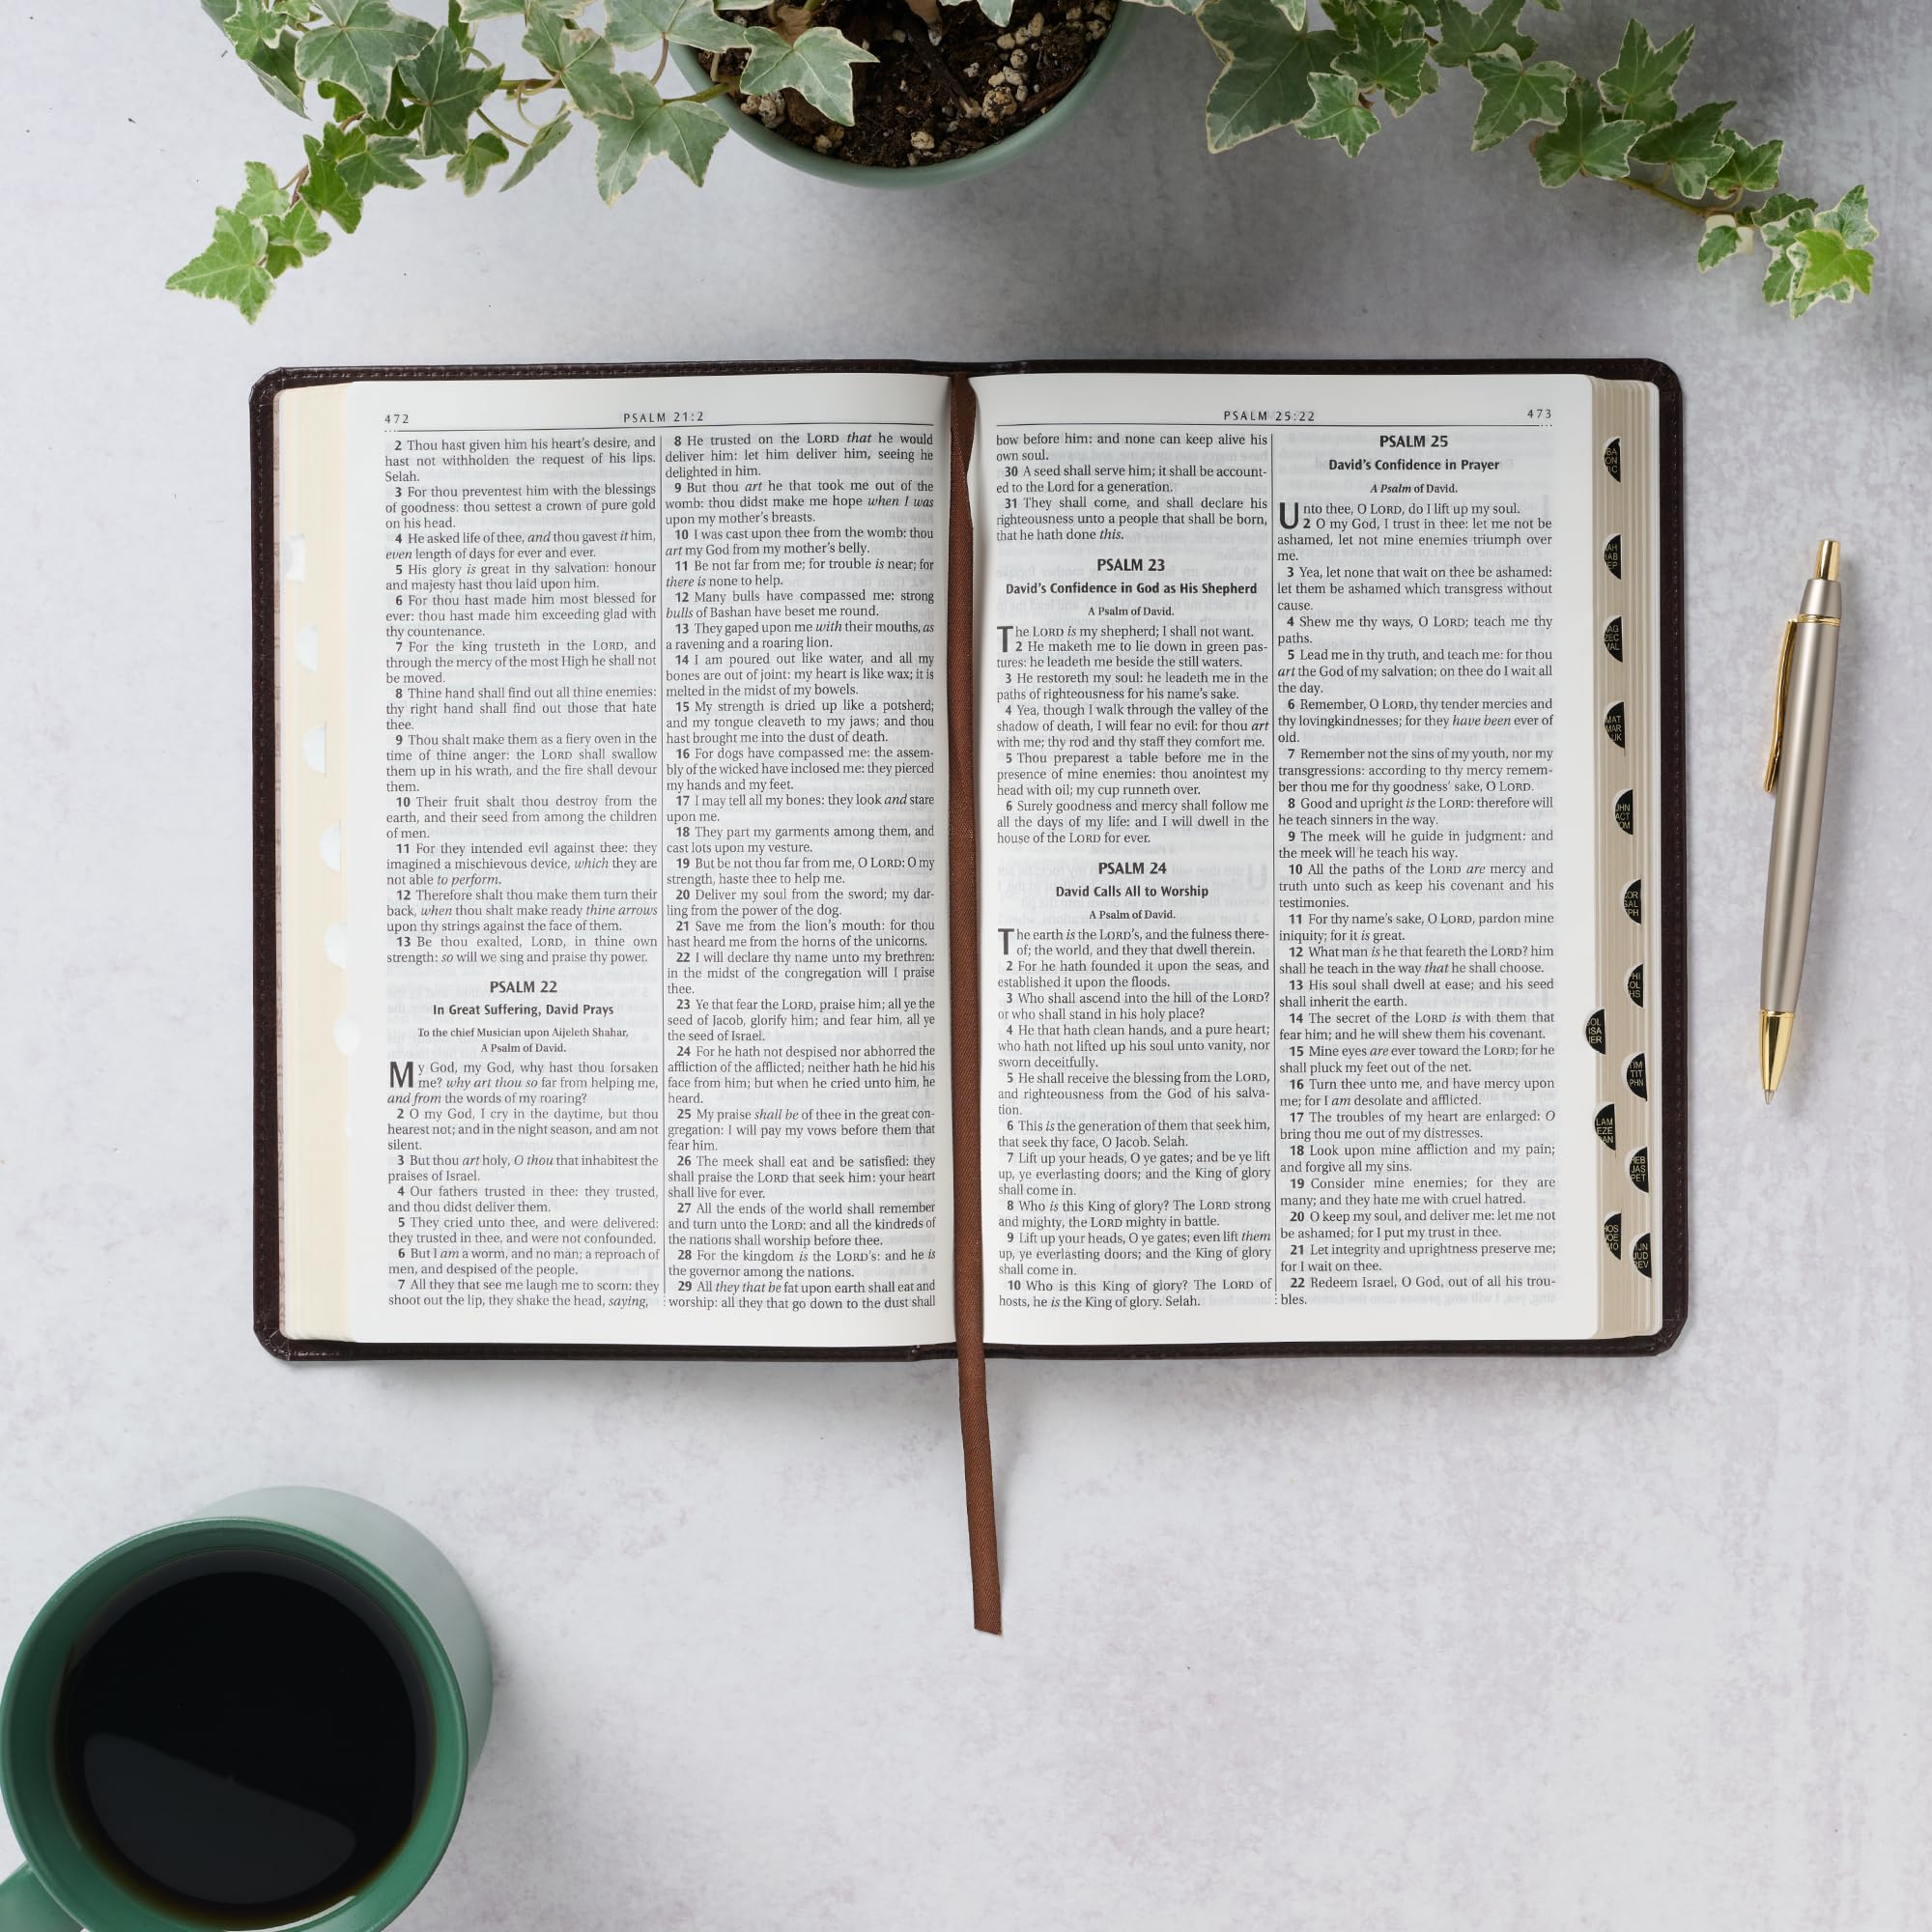 472
PSALM 21:2
2 Thou hast given him his heart's desire, and
hast not withholden the request of his lips.
Selah.
3 For thou preventest him with the blessings
of goodness: thou settest a crown of pure gold
on his head.
4 He asked life of thee, and thou gavest it him,
even length of days for ever and ever.
5 His glory is great in thy salvation: honour
and majesty hast thou laid upon him.
6 For thou hast made him most blessed for
ever: thou hast made him exceeding glad with
thy countenance.
7 For the king trusteth in the LORD, and
through the mercy of the most High he shall not
be moved.
8 Thine hand shall find out all thine enemies:
thy right hand shall find out those that hate
thee.
9 Thou shalt make them as a fiery oven in the
time of thine anger: the LORD shall swallow
them up in his wrath, and the fire shall devour
them.
10 Their fruit shalt thou destroy from the
earth, and their seed from among the children
of men.
11 For they intended evil against thee: they
imagined a mischievous device, which they are
not able to perform.
12 Therefore shalt thou make them turn their
back, when thou shalt make ready thine arrows
upon thy strings against the face of them.
13 Be thou exalted, LORD, in thine own
strength: so will we sing and praise thy power.
PSALM 22
In Great Suffering, David Prays
To the chief Musician upon Aijeleth Shahar,
A Psalm of David.
My God, my God, why hast thou forsaken
me? why art thou so far from helping me,
and from the words of my roaring?
2 O my God, I cry in the daytime, but thou
hearest not; and in the night season, and am not
silent.
3 But thou art holy, O thou that inhabitest the
praises of Israel.
4 Our fathers trusted in thee: they trusted,
and thou didst deliver them.
5 They cried unto thee, and were delivered:
they trusted in thee, and were not confounded.
6 But I am a worm, and no man; a reproach of
men, and despised of the people.
7 All they that see me laugh me to scorn: they
shoot out the lip, they shake the head, saying,
8 He trusted on the LORD that he would
deliver him: let him deliver him, seeing he
delighted in him.
9 But thou art he that took me out of the
womb: thou didst make me hope when I was
upon my mother's breasts.
10 I was cast upon thee from the womb: thou
art my God from my mother's belly.
11 Be not far from me; for trouble is near; for
there is none to help.
12 Many bulls have compassed me: strong
bulls of Bashan have beset me round.
13 They gaped upon me with their mouths, as
a ravening and a roaring lion.
14 I am poured out like water, and all my
bones are out of joint: my heart is like wax; it is
melted in the midst of my bowels.
15 My strength is dried up like a potsherd;
and my tongue cleaveth to my jaws; and thou
hast brought me into the dust of death.
16 For dogs have compassed me: the assem-
bly of the wicked have inclosed me: they pierced
my hands and my feet.
17 I may tell all my bones: they look and stare
upon me.
18 They part my garments among them, and
cast lots upon my vesture.
19 But be not thou far from me, O LORD: O my
strength, haste thee to help me.
20 Deliver my soul from the sword; my dar-
ling from the power of the dog.
21 Save me from the lion's mouth: for thou
hast heard me from the horns of the unicorns.
22 I will declare thy name unto my brethren:
in the midst of the congregation will I praise
thee.
23 Ye that fear the LORD, praise him; all ye the
seed of Jacob, glorify him; and fear him, all ye
the seed of Israel.
24 For he hath not despised nor abhorred the
affliction of the afflicted; neither hath he hid his
face from him; but when he cried unto him, he
heard.
25 My praise shall be of thee in the great con-
gregation: I will pay my vows before them that
fear him.
26 The meek shall eat and be satisfied: they
shall praise the LORD that seek him: your heart
shall live for ever.
27 All the ends of the world shall remember
and turn unto the LORD: and all the kindreds of
the nations shall worship before thee.
28 For the kingdom is the LORD's: and he is
the governor among the nations.
29 All they that be fat upon earth shall eat and
worship: all they that go down to the dust shall
PSALM 25:22
473
bow before him: and none can keep alive his
own soul.
30 A seed shall serve him; it shall be account-
ed to the Lord for a generation.
31 They shall come, and shall declare his
righteousness unto a people that shall be born,
that he hath done this.
PSALM 23
David's Confidence in God as His Shepherd
A Psalm of David.
The LORD is my shepherd; I shall not want.
2 He maketh me to lie down in green pas-
tures: he leadeth me beside the still waters.
3 He restoreth my soul: he leadeth me in the
paths of righteousness for his name's sake.
4 Yea, though I walk through the valley of the
shadow of death, I will fear no evil: for thou art
with me; thy rod and thy staff they comfort me.
5 Thou preparest a table before me in the
presence of mine enemies: thou anointest my
head with oil; my cup runneth over.
6 Surely goodness and mercy shall follow me
all the days of my life: and I will dwell in the
house of the LORD for ever.
PSALM 24
David Calls All to Worship
A Psalm of David.
The earth is the LORD's, and the fulness there-
of; the world, and they that dwell therein.
2 For he hath founded it upon the seas, and
established it upon the floods.
3 Who shall ascend into the hill of the LORD?
or who shall stand in his holy place?
4 He that hath clean hands, and a pure heart;
who hath not lifted up his soul unto vanity, nor
sworn deceitfully.
5 He shall receive the blessing from the LORD,
and righteousness from the God of his salva-
tion.
6 This is the generation of them that seek him,
that seek thy face, O Jacob. Selah.
7 Lift up your heads, O ye gates; and be ye lift
up, ye everlasting doors; and the King of glory
shall come in.
8 Who is this King of glory? The LORD strong
and mighty, the LORD mighty in battle.
9 Lift up your heads, O ye gates; even lift them
up, ye everlasting doors; and the King of glory
shall come in.
10 Who is this King of glory? The LORD of
hosts, he is the King of glory. Selah.
PSALM 25
David's Confidence in Prayer
A Psalm of David.
Unto thee, O LORD, do I lift up my soul.
2 O my God, I trust in thee: let me not be
ashamed, let not mine enemies triumph over
me.
3 Yea, let none that wait on thee be ashamed:
let them be ashamed which transgress without
cause.
4 Shew me thy ways, O LORD; teach me thy
paths.
5 Lead me in thy truth, and teach me: for thou
art the God of my salvation; on thee do I wait all
the day.
6 Remember, O LORD, thy tender mercies and
thy lovingkindnesses; for they have been ever of
old.
7 Remember not the sins of my youth, nor my
transgressions: according to thy mercy remem-
ber thou me for thy goodness' sake, O LORD.
8 Good and upright is the LORD: therefore will
he teach sinners in the way.
9 The meek will he guide in judgment: and
the meek will he teach his way.
10 All the paths of the LORD are mercy and
truth unto such as keep his covenant and his
testimonies.
11 For thy name's sake, O LORD, pardon mine
iniquity; for it is great.
12 What man is he that feareth the LORD? him
shall he teach in the way that he shall choose.
13 His soul shall dwell at ease; and his seed
shall inherit the earth.
14 The secret of the LORD is with them that
fear him; and he will shew them his covenant.
15 Mine eyes are ever toward the LORD; for he
shall pluck my feet out of the net.
16 Turn thee unto me, and have mercy upon
me; for I am desolate and afflicted.
17 The troubles of my heart are enlarged: O
bring thou me out of my distresses.
18 Look upon mine affliction and my pain;
and forgive all my sins.
19 Consider mine enemies; for they are
many; and they hate me with cruel hatred.
20 O keep my soul, and deliver me: let me not
be ashamed; for I put my trust in thee.
21 Let integrity and uprightness preserve me;
for I wait on thee.
22 Redeem Israel, O God, out of all his trou-
bles.
MAT
MAR
ACT
GAL
ISA
TIM
TIT
PHN
LAM
EZE
JAS
PET
JUD
REV